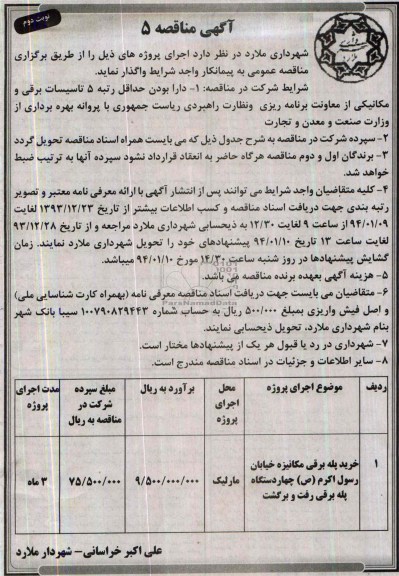 نوبت دوم
آگهی مناقصه ۵
شهرداری ملارد در نظر دارد اجرای پروژه های ذیل را از طریق برگزاری
مناقصه عمومی به پیمانکار واجد شرایط واگذار نماید.
شرایط شرکت در مناقصه: ۱- دارا بودن حداقل رتبه ۵ تاسیسات برقی و
مکانیکی از معاونت برنامه ریزی ونظارت راهبردی ریاست جمهوری با پروانه بهره برداری از
وزارت صنعت و معدن و تجارت
۲- سپرده شرکت در مناقصه به شرح جدول ذیل که می بایست همراه اسناد مناقصه تحویل گردد
۳- برندگان اول و دوم مناقصه هرگاه حاضر به انعقاد قرارداد نشود سپرده آنها به ترتیب ضبط
خواهد شد.
۴- کلیه متقاضیان واجد شرایط می توانند پس از انتشار آگهی با ارائه معرفی نامه معتبر و تصویر
رتبه بندی جهت دریافت اسناد مناقصه و کسب اطلاعات بیشتر از تاریخ ۱۳۹۳/۱۲/۲۳ لغایت
۹۴/۰۱/۰۹ از ساعت ۹ لغایت ۱۲/۳۰ به ذیحسابی شهرداری ملارد مراجعه و از تاریخ ۹۳/۱۲/۲۸
لغایت ساعت ۱۳ تاریخ ۹۴/۰۱/۱۰ پیشنهادهای خود را تحویل شهرداری ملارد نمایند. زمان
گشایش پیشنهادها در روز شنبه ساعت ۱۴/۳۰ مورخ ۹۴/۰۱/۱۰ میباشد.
۵- هزینه آگهی بعهده برنده مناقصه می باشد.
۶- متقاضیان می بایست جهت دریافت اسناد مناقصه معرفی نامه (بهمراه کارت شناسایی ملی)
و اصل فیش واریزی بمبلغ ۵۰۰/۰۰۰ ریال به حساب شماره ۱۰۰۷۹۰۸۲۹۴۴۳ سیبا بانک شهر
بنام شهرداری ملارد، تحویل ذیحسابی نمایند.
۷- شهرداری در رد یا قبول هر یک از پیشنهادها مختار است.
۸- سایر اطلاعات و جزئیات در اسناد مناقصه مندرج است.
ردیف موضوع اجرای پروژه محل اجرای پروژه برآورد به ریال مبلغ سپرده شرکت در مناقصه به ریال مدت اجرای پروژه
۱ خرید پله برقی مکانیزه خیابان رسول اکرم (ص) چهاردستگاه پله برقی رفت و برگشت مارلیک ۹/۵۰۰/۰۰۰/۰۰۰ ۷۵/۵۰۰/۰۰۰ ۳ ماه
علی اکبر خراسانی- شهردار ملارد